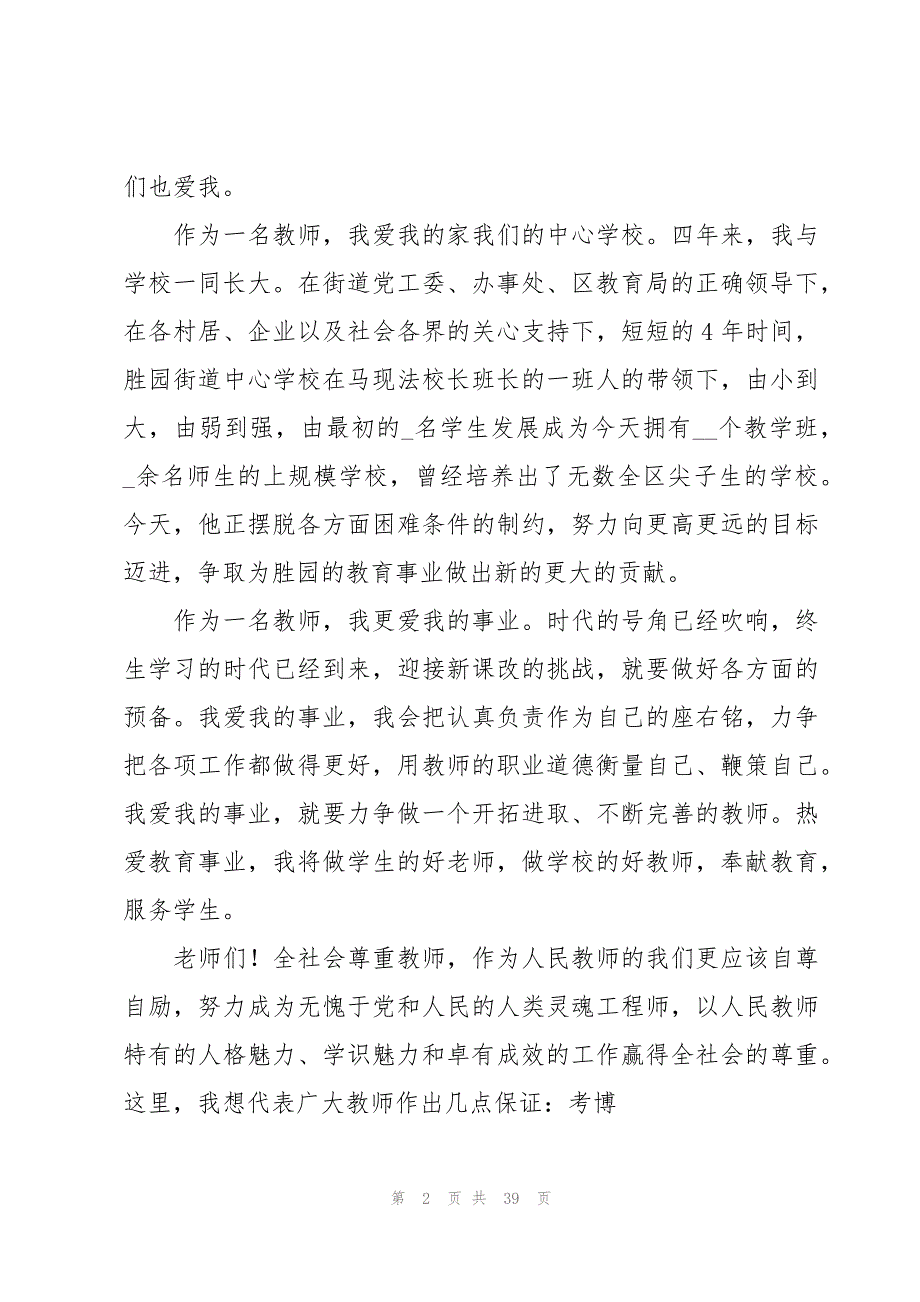 们也爱我。
作为一名教师，我爱我的家我们的中心学校。四年来，我与
学校一同长大。在街道党工委、办事处、区教育局的正确领导下，
在各村居、企业以及社会各界的关心支持下，短短的 4 年时间，
胜园街道中心学校在马现法校长班长的一班人的带领下，由小到
大，由弱到强，由最初的_名学生发展成为今天拥有__个教学班，
_余名师生的上规模学校，曾经培养出了无数全区尖子生的学校。
今天，他正摆脱各方面困难条件的制约，努力向更高更远的目标
迈进，争取为胜园的教育事业做出新的更大的贡献。
作为一名教师，我更爱我的事业。时代的号角已经吹响，终
生学习的时代已经到来，迎接新课改的挑战，就要做好各方面的
预备。我爱我的事业，我会把认真负责作为自己的座右铭，力争
把各项工作都做得更好，用教师的职业道德衡量自己、鞭策自己。
我爱我的事业，就要力争做一个开拓进取、不断完善的教师。热
爱教育事业，我将做学生的好老师，做学校的好教师，奉献教育，
服务学生。
老师们！全社会尊重教师，作为人民教师的我们更应该自尊
自励，努力成为无愧于党和人民的人类灵魂工程师，以人民教师
特有的人格魅力、学识魅力和卓有成效的工作赢得全社会的尊重。
这里，我想代表广大教师作出几点保证：考博
第 2 页 共 39 页